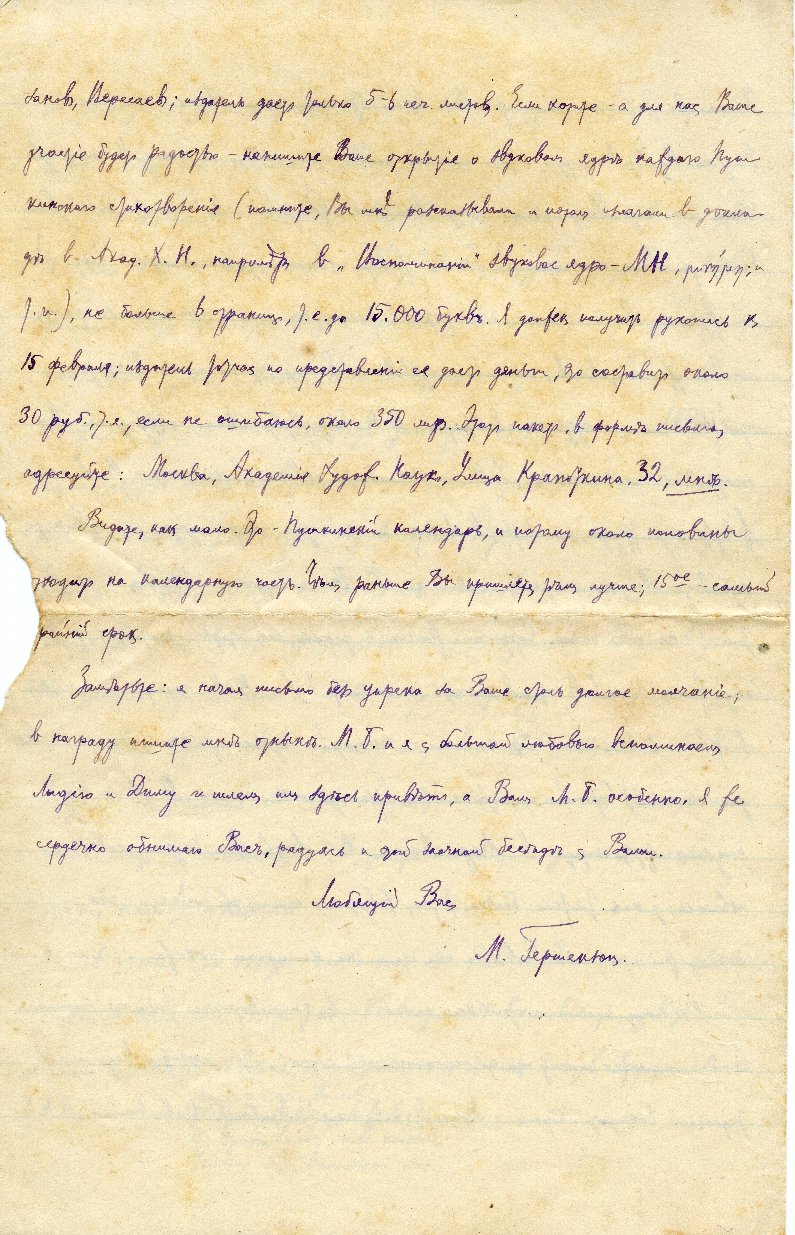 занов, Вересаев; издатель дает только 5-6 печ. листов. Если хотите – а для нас Ваше
участіе будет радостью – напишите Ваше открытіе о звуковом ядрѣ каждаго Пуш-
кинскаго стихотворенія (помните, Вы мнѣ рассказывали и потом излагали в докла-
дѣ в Акад. Х. Н., напримѣр в „Воспоминаніи" звуковое ядро – МН,
т. п.), не больше 6 страниц, т.е. до 15.000 букв. Я должен получить рукопись к
15 февраля; издатель тотчас по представленіи ее даст деньги, это составит около
30 руб., т.е., если не ошибаюсь, около 350 лир. Этот пакет, в формѣ письма,
адресуйте: Москва, Академія Худож. Наук, Улица Крапоткина, 32, мнѣ.
Видите, как мало. Это – Пушкинскій календарь, и потому около половины
уходит на календарную часть. Чѣм раньше Вы пришлете, тѣм лучше; 15ое – самый
крайній срок.
Замѣтьте: я начал письмо без упрека за Ваше столь долгое молчаніе;
в награду пишите мнѣ отнынѣ. М. Б. и я с большой любовью вспоминаем
Лидію и Диму и шлем им здѣсь привѣт, а Вам М. Б. особенно. Я же
сердечно обнимаю Васъ, радуясь и этой заочной бесѣдѣ с Вами.
Любящій Вас
М. Гершензон.